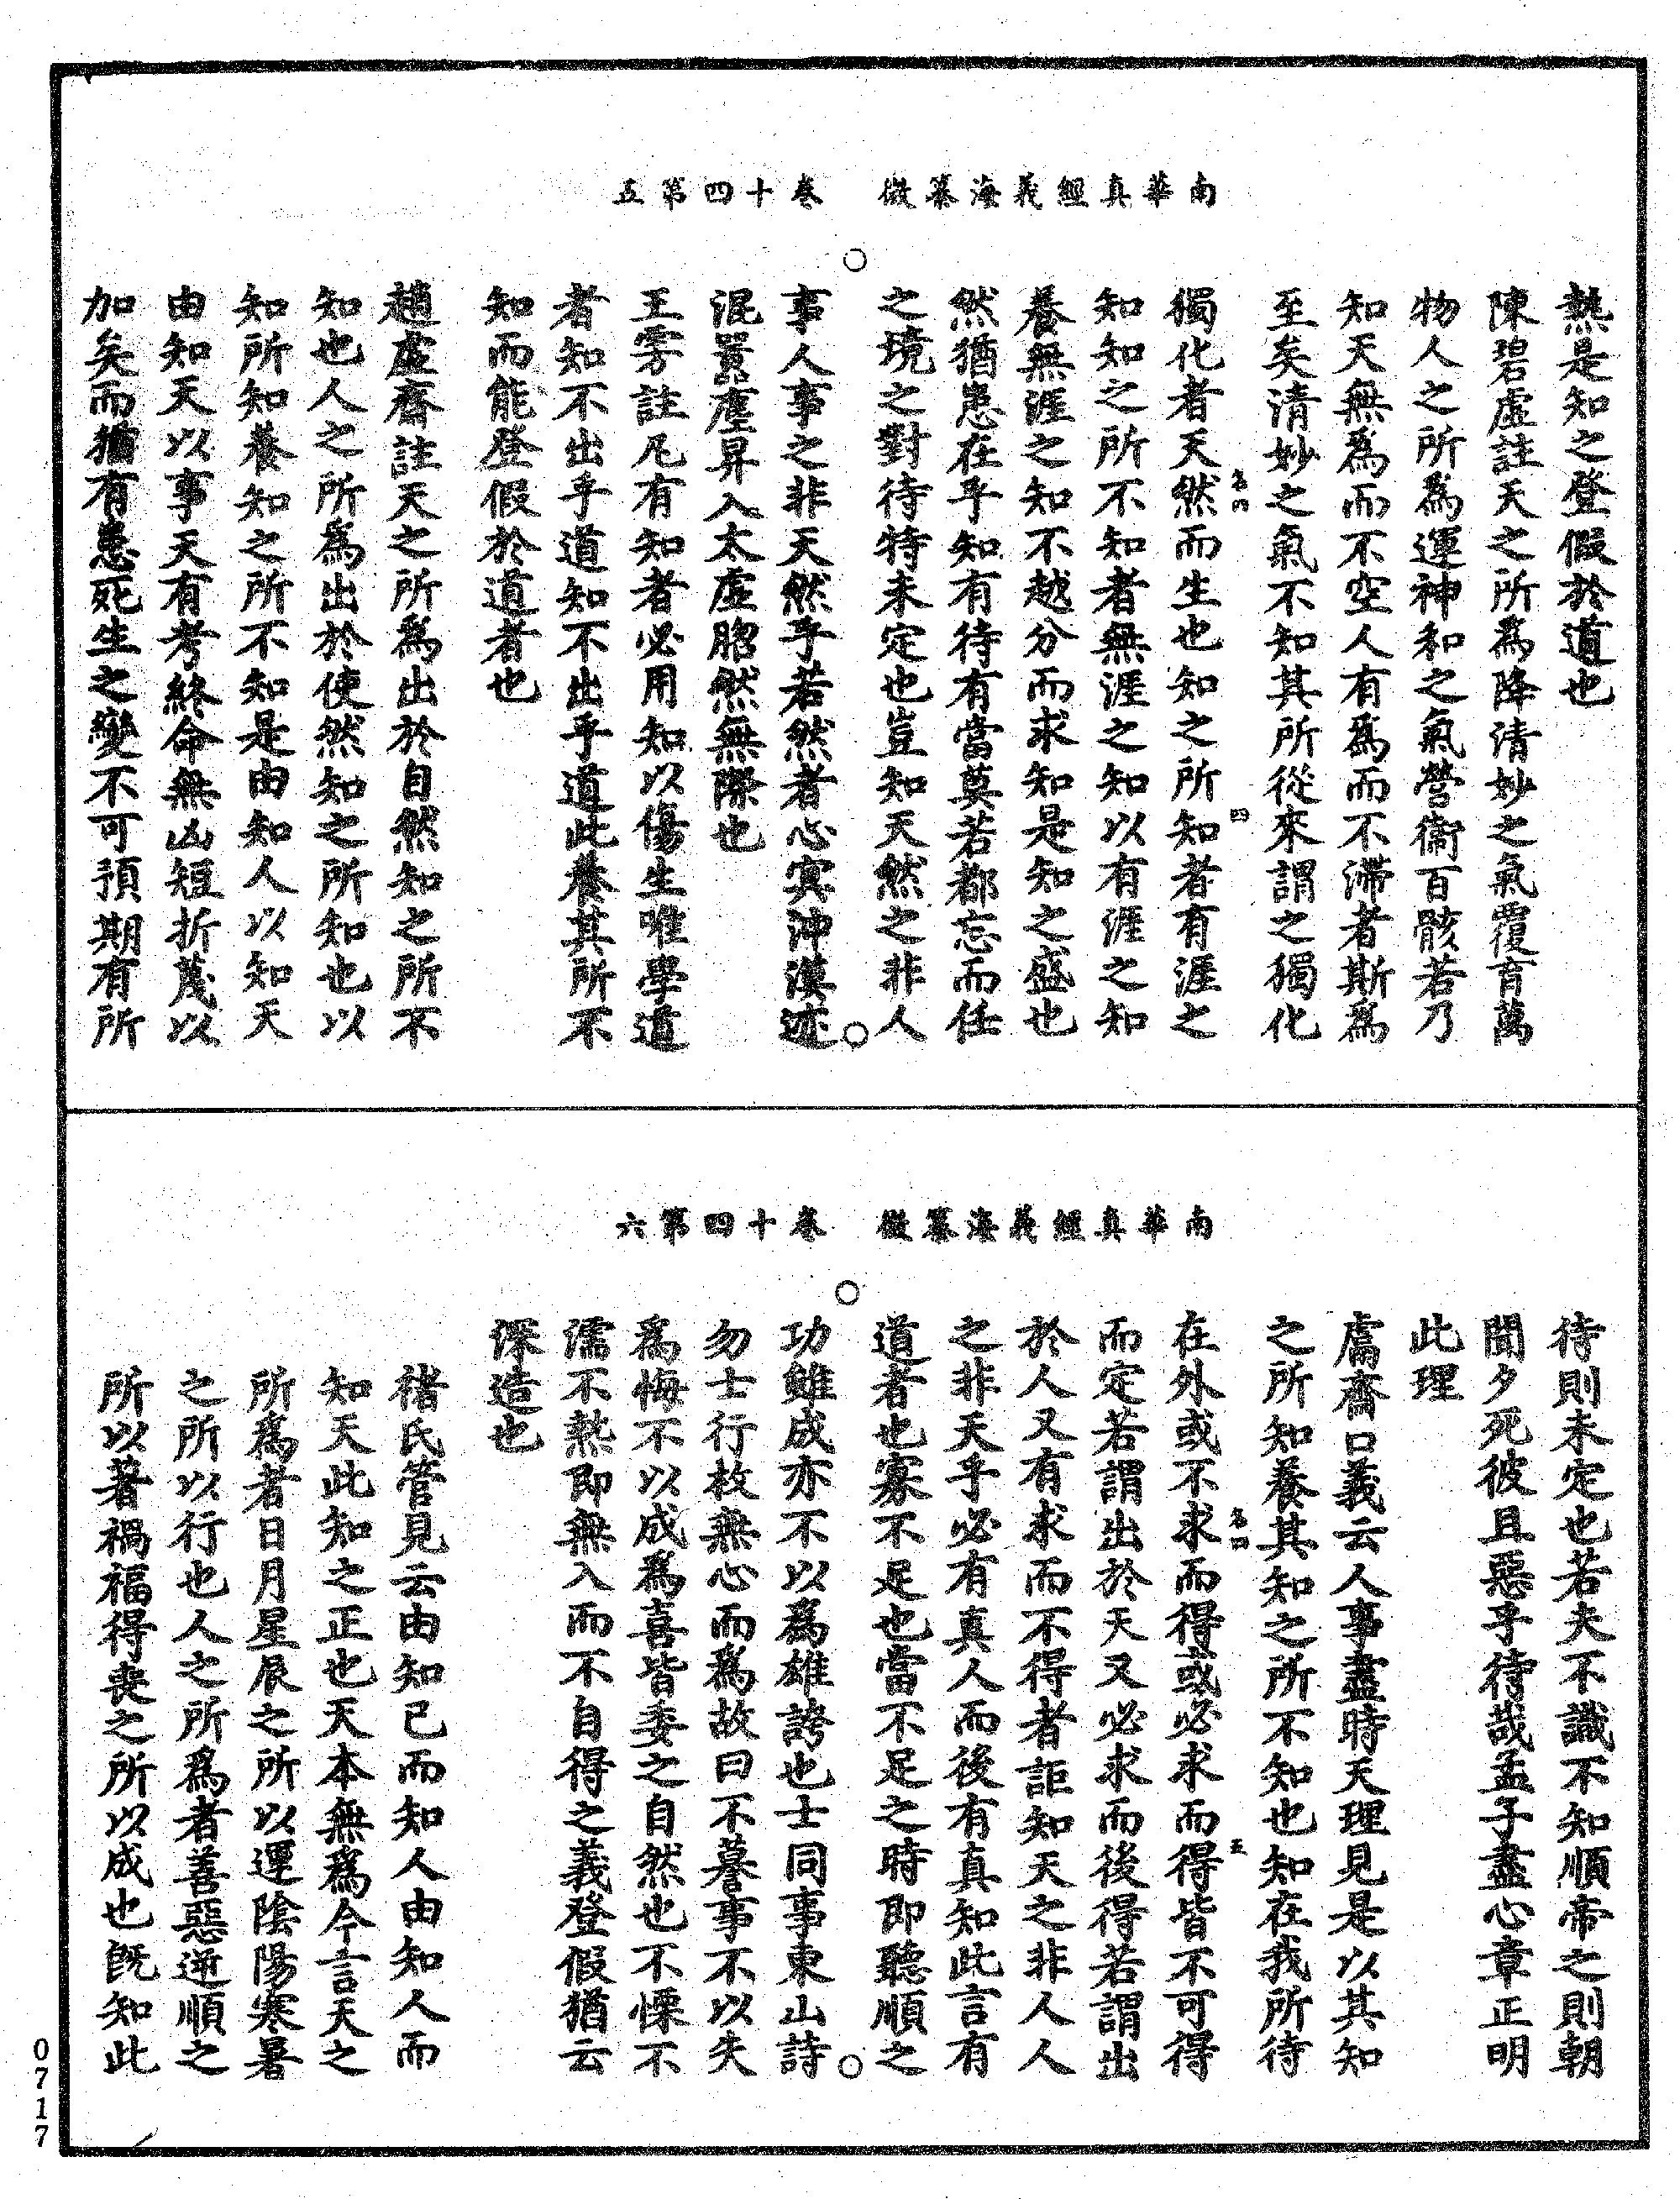 南華真經義海纂微　卷十四第五
熱是知之登假於道也
陳碧虛註天之所爲降清妙之氣覆育萬
物人之所爲運神和之氣營衞百骸若乃
知天無爲而不空人有爲而不滯者斯爲
至矣清妙之氣不知其所從來謂之獨化
獨化者天然而生也知之所知者有涯之
知知之所不知者無涯之知以有涯之知
養無涯之知不越分而求知是知之盛也
然猶患在乎知有待有當莫若都忘而任
之境之對待特未定也豈知天然之非人
事人事之非天然乎若然者心寞沖漠迹
混囂塵昇入太虛昭然無際也
王雱註凡有知者必用知以傷生唯學道
者知不出乎道知不出乎道此養其所不
知而能登假於道者也
趙虛齋註天之所爲出於自然知之所不
知也人之所爲出於使然知之所知也以
知所知養知之所不知是由知人以知天
由知天以事天有考終命無凶短折蔑以
加矣而猶有患死生之變不可預期有所
南華真經義海纂微　卷十四第六
待則未定也若夫不識不知順帝之則朝
聞夕死彼且惡乎待哉孟子盡心章正明
此理
鬳齋口義云人事盡時天理見是以其知
之所知養其知之所不知也知在我所待
在外或不求而得或必求而得皆不可得
而定若謂出於天又必求而後得若謂出
於人又有求而不得者詎知天之非人人
之非天乎必有真人而後有真知此言有
道者也寡不足也當不足之時即聽順之
功雖成亦不以爲雄誇也士同事東山詩
勿士行枚無心而爲故曰不謩事不以失
爲悔不以成爲喜皆委之自然也不慄不
濡不熱即無入而不自得之義登假猶云
深造也
褚氏管見云由知己而知人由知人而
知天此知之正也天本無爲今言天之
所爲者日月星辰之所以運陰陽寒暑
之所以行也人之所爲者善惡逆順之
所以著禍福得喪之所以成也既知此
四
五
0717